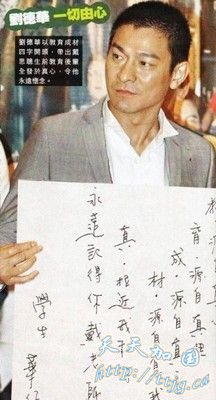 劉德華 一切由心
劉德華以教育成材
四字開頭,帶出戴
思聰生前教育後輩
全發於真心,令他
永遠懷念。
育·源自真
成·源自真
材·源自
真·相近我
永遠記得你戴老師
學生
華仔
天天加国
http://ttjg.ca